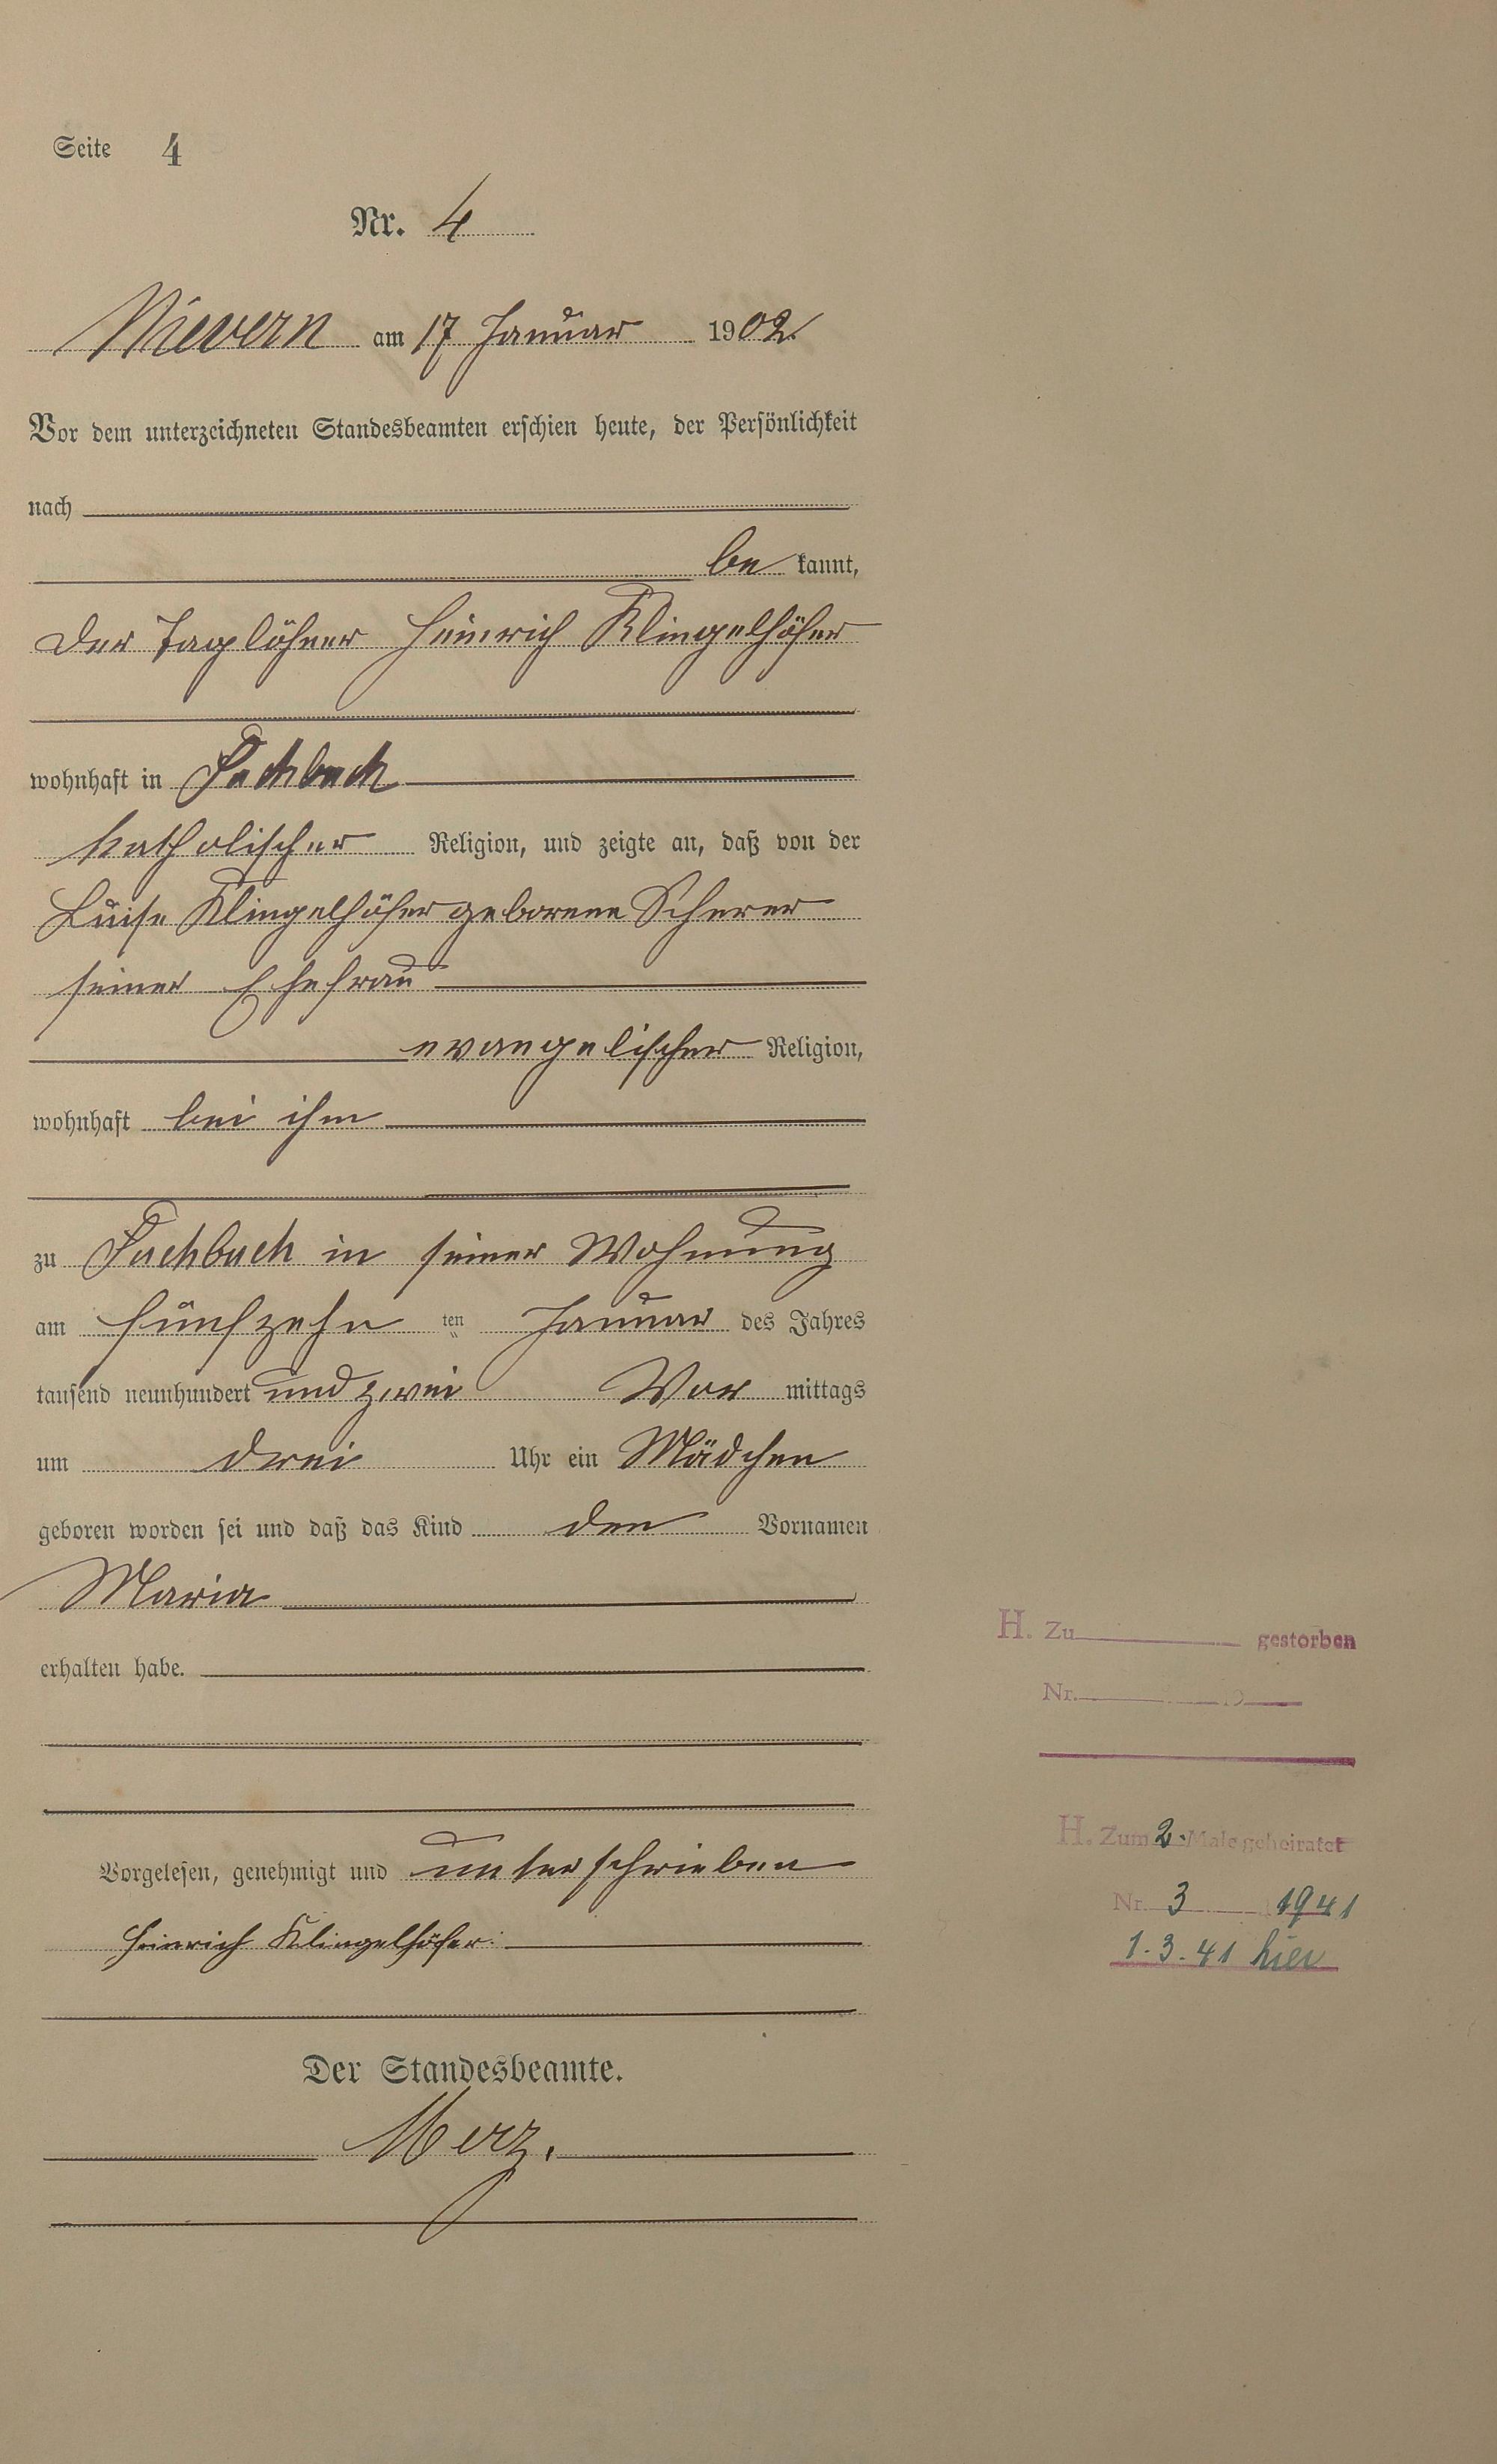 Seite 4
Nr. 4
Nievern am 17 Januar 1902
Vor dem unterzeichneten Standesbeamten erschien heute, der Persönlichkeit
nach
be kannt,
der Taglöhner Heinrich Klingelhöfer
wohnhaft in Fachbach
katholischer Religion, und zeigte an, daß von der
Luise Klingelhöfer geborene Scherer
seiner Ehefrau
evangelischer Religion,
wohnhaft bei ihm
zu Fachbach in seiner Wohnung
am fünfzehn ten Januar des Jahres
tausend neunhundert und zwei Vor mittags
um drei Uhr ein Mädchen
geboren worden sei und daß das Kind den Vornamen
Maria
erhalten habe.
Vorgelesen, genehmigt und unterschrieben
Heinrich Klingelhöfer.
Der Standesbeamte.
Merz.
H. Zu gestorben
Nr.
H. Zum 2. Male geheiratet
Nr. 3 1941
1.3.41 hier